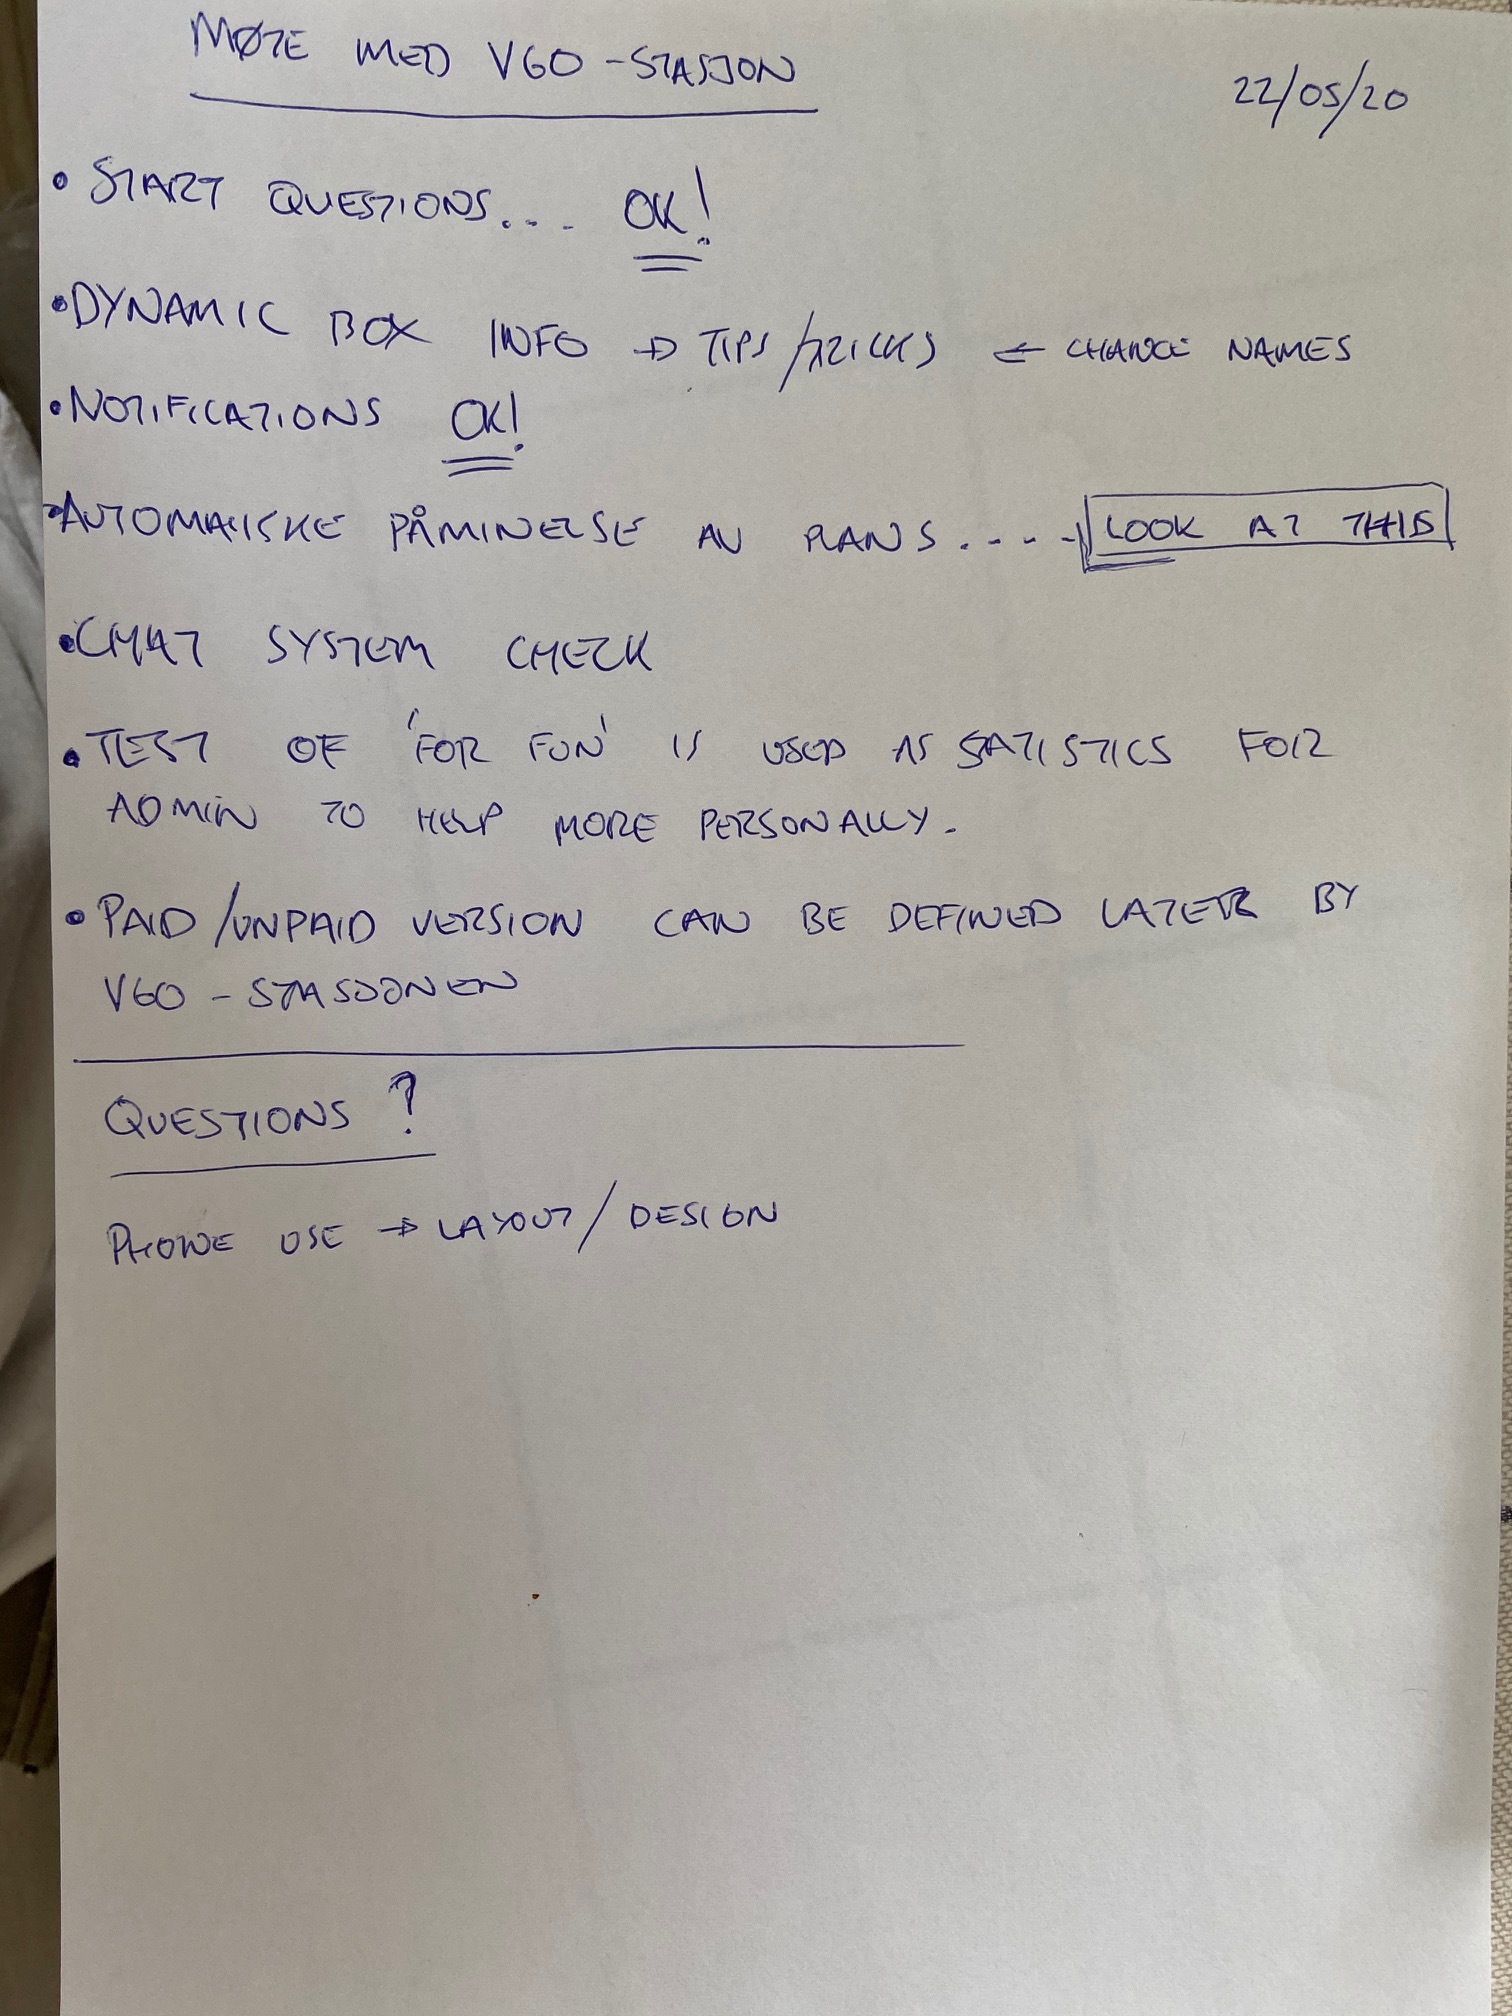 MØTE MED VGO-STASJON
22/05/20
• START QUESTIONS... OK!
• DYNAMIC BOX INFO → TIPS/TRICKS ← CHANGE NAMES
• NOTIFICATIONS OK!
• AUTOMATISKE PÅMINELSE AV PLANS.... LOOK AT THIS
• CHAT SYSTEM CHECK
• TEST OF 'FOR FUN' IS USED AS SATISTICS FOR
ADMIN TO HELP MORE PERSONALLY.
• PAID/UNPAID VERSION CAN BE DEFINED LATER BY
VGO-STASJONEN
QUESTIONS?
PHONE USE → LAYOUT/DESIGN